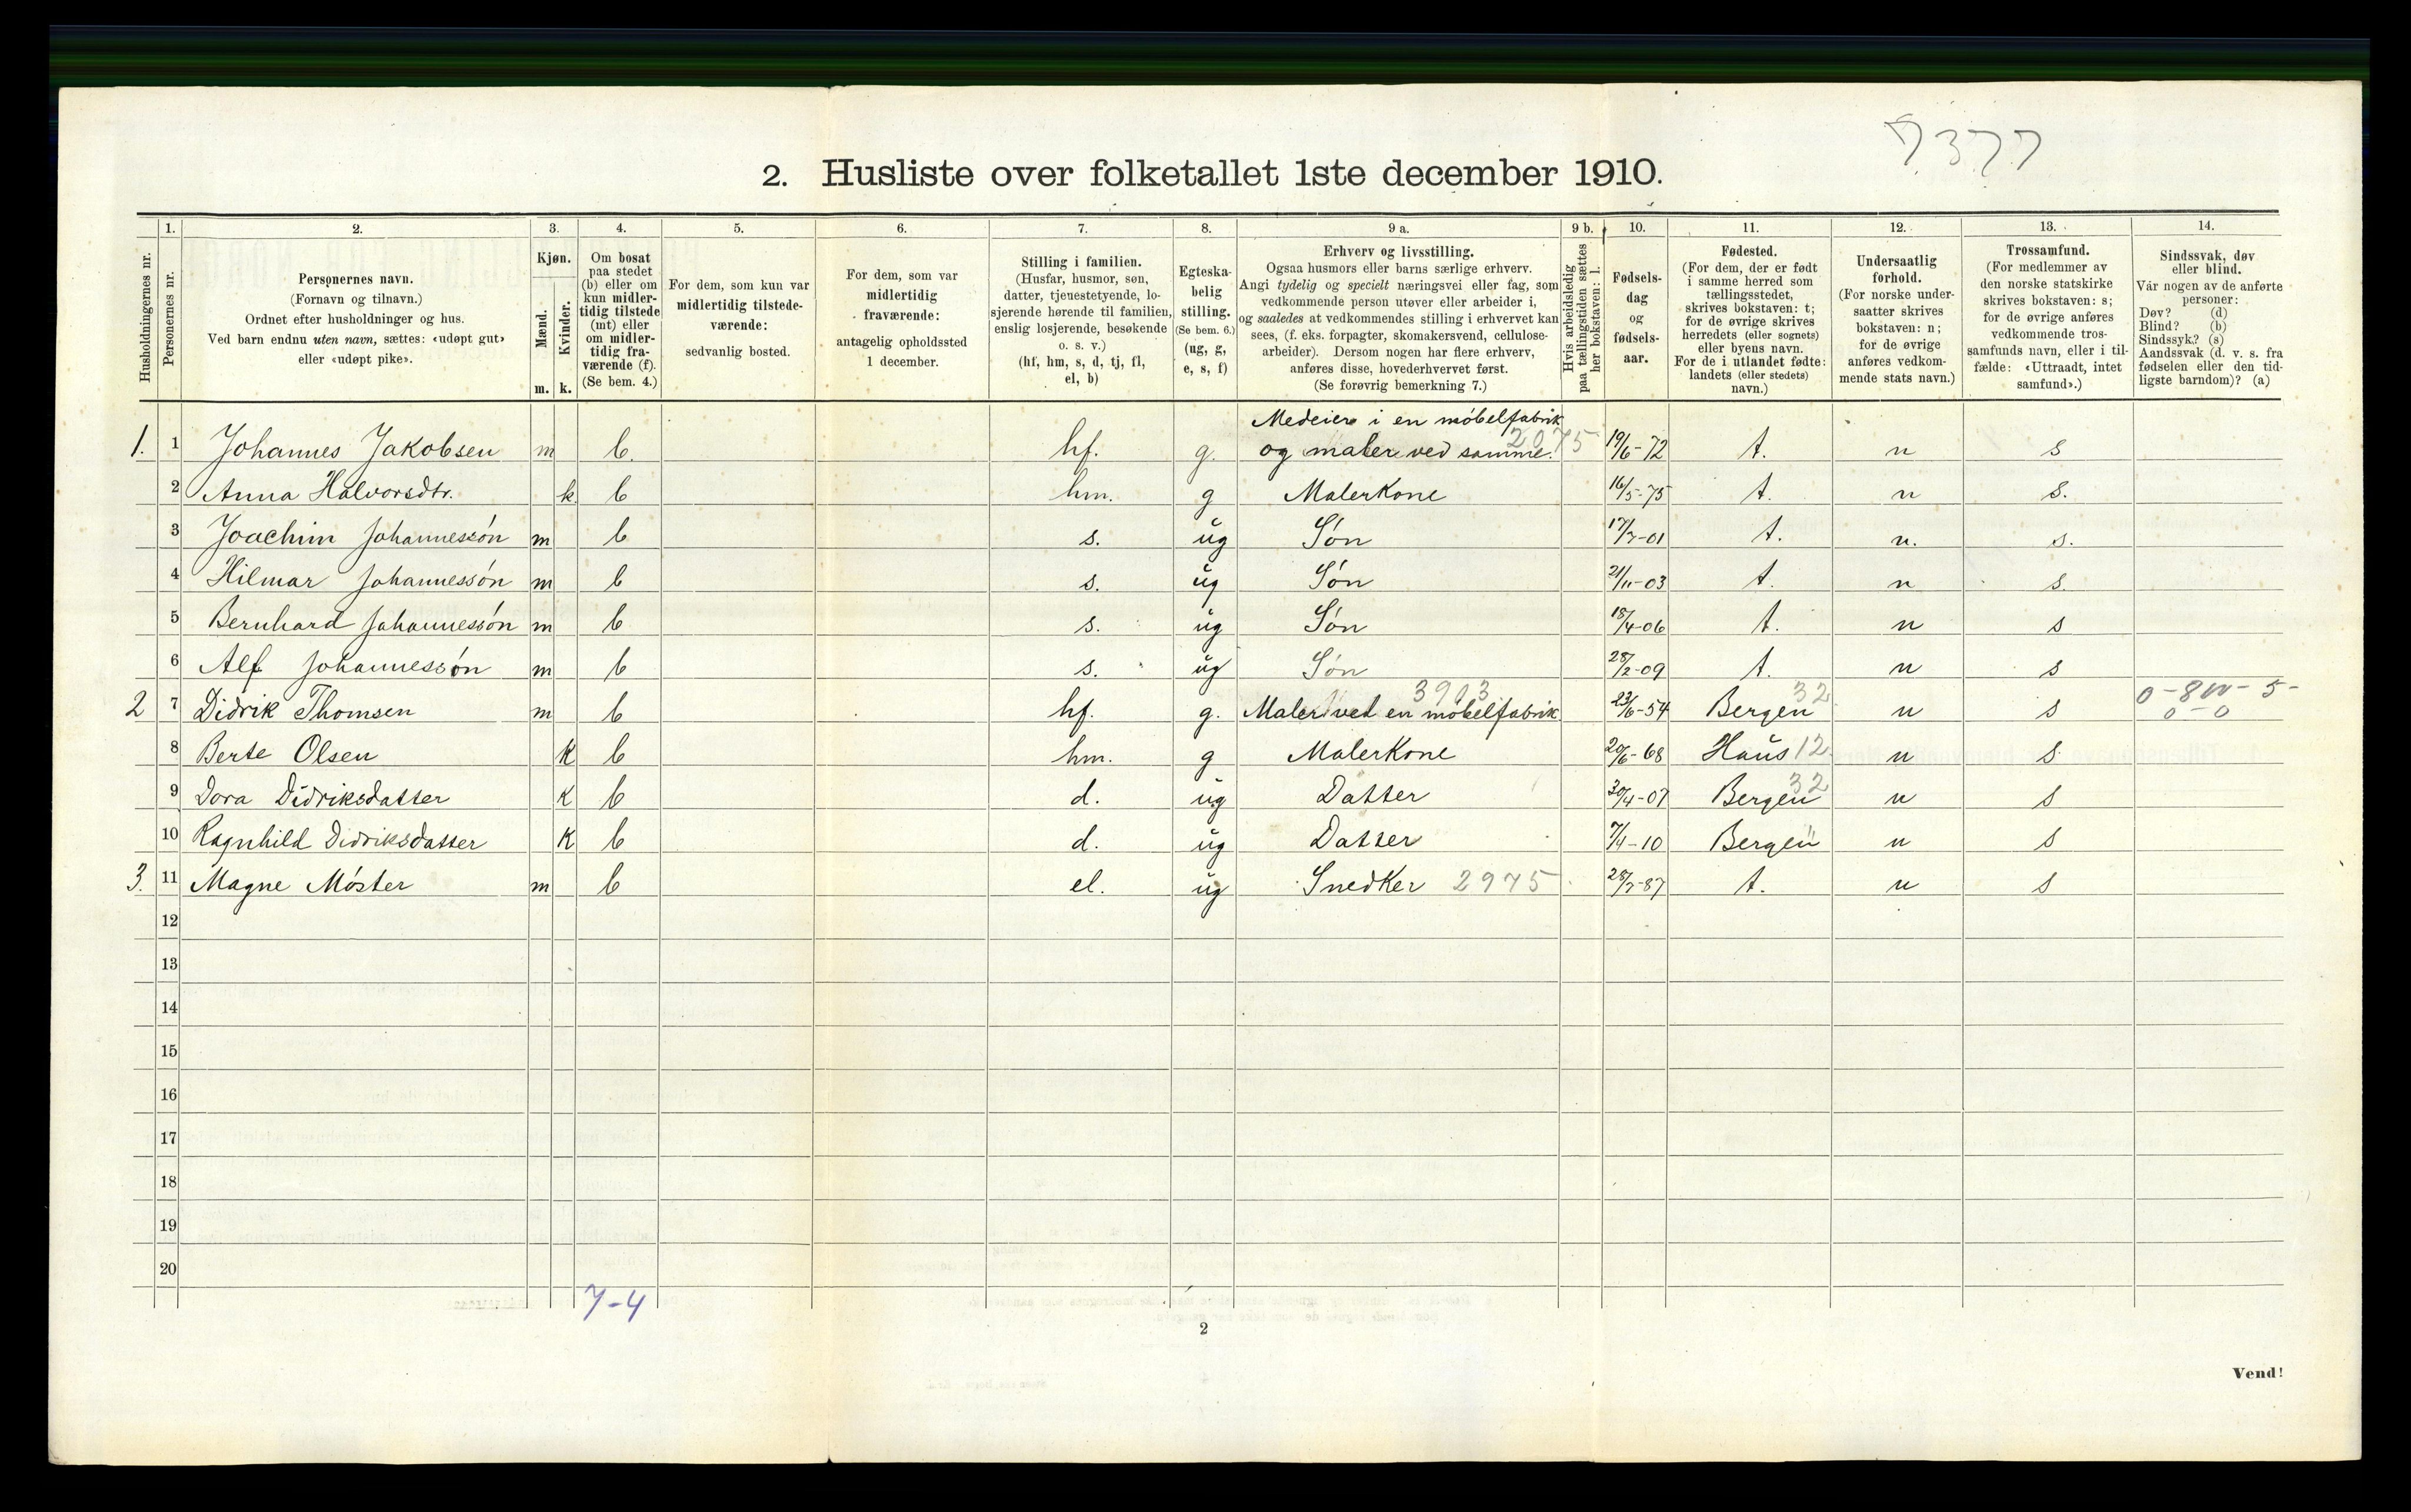 7377
2. Husliste over folketallet 1ste december 1910.
1. 2. 3. 4. 5. 6. 7. 8. 9 a. 9 b. 10. 11. 12. 13. 14.
Husholdningernes nr.
Personernes nr.
Personernes navn.
(Fornavn og tilnavn.)
Ordnet efter husholdninger og hus.
Ved barn endnu uten navn, sættes: «udøpt gut»
eller «udøpt pike».
Kjøn.
Mænd.
Kvinder.
m. k.
Om bosat
paa stedet
(b) eller om
kun midler-
tidig tilstede
(mt) eller
om midler-
tidig fra-
værende (f).
(Se bem. 4.)
For dem, som kun var
midlertidig tilstede-
værende:
sedvanlig bosted.
For dem, som var
midlertidig
fraværende:
antagelig opholdssted
1 december.
Stilling i familien.
(Husfar, husmor, søn,
datter, tjenestetyende, lo-
sjerende hørende til familien,
enslig losjerende, besøkende
o. s. v.)
(hf, hm, s, d, tj, fl,
el, b)
Egteska-
belig
stilling.
(Se bem. 6.)
(ug, g,
e, s, f)
Erhverv og livsstilling.
Ogsaa husmors eller barns særlige erhverv.
Angi tydelig og specielt næringsvei eller fag, som
vedkommende person utøver eller arbeider i,
og saaledes at vedkommendes stilling i erhvervet kan
sees, (f. eks. forpagter, skomakersvend, cellulose-
arbeider). Dersom nogen har flere erhverv,
anføres disse, hovederhvervet først.
(Se forøvrig bemerkning 7.)
Hvis arbeidsledig
paa tællingstiden sættes
her bokstaven: l.
Fødsels-
dag
og
fødsels-
aar.
Fødested.
(For dem, der er født
i samme herred som
tællingsstedet,
skrives bokstaven: t;
for de øvrige skrives
herredets (eller sognets)
eller byens navn.
For de i utlandet fødte:
landets (eller stedets)
navn.)
Undersaatlig
forhold.
(For norske under-
saatter skrives
bokstaven: n;
for de øvrige
anføres vedkom-
mende stats navn.)
Trossamfund.
(For medlemmer av
den norske statskirke
skrives bokstaven: s;
for de øvrige anføres
vedkommende tros-
samfunds navn, eller i til-
fælde: «Uttraadt, intet
samfund».)
Sindssvak, døv
eller blind.
Var nogen av de anførte
personer:
Døv? (d)
Blind? (b)
Sindssyk? (s)
Aandssvak (d. v. s. fra
fødselen eller den tid-
ligste barndom)? (a)
Medeier i en møbelfabrik
1. 1 Johannes Jakobsen m b. hf. g. og maler ved samme. 2075 19/6-72 t. n s
2 Anna Halvorsdtr. k b hm. g Malerkone 16/5-75 t. n s.
3 Joachim Johannessøn m b s. ug Søn 17/7-01 t. n. s.
4 Hilmar Johannessøn m b s. ug Søn 21/11-03 t. n s.
5 Bernhard Johannessøn m b s. ug Søn 18/4-06 t. n s
6 Alf Johannessøn m b s. ug Søn 28/2-09 t. n s
2 7 Didrik Thomsen m b hf. g. Maler ved en møbelfabrik 3903 23/6-54 Bergen 32 n s 0-800-5-
0-0
8 Berte Olsen k b hm. g Malerkone 20/6-68 Haus 12 n s
9 Dora Didriksdatter k b d. ug Datter 30/4-07 Bergen 32 n s
10 Ragnhild Didriksdatter k b d. ug Datter 7/4-10 Bergen " n s
3. 11 Magne Møster m b el. ug Snedker 2975 28/7-87 t. n s
12
13
14
15
16
17
18
19
20
7-4
2
Vend!